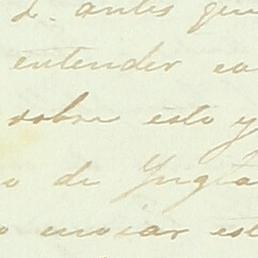 d. antes que
entender en
sobre esto y
o de Yngla
o enviar est